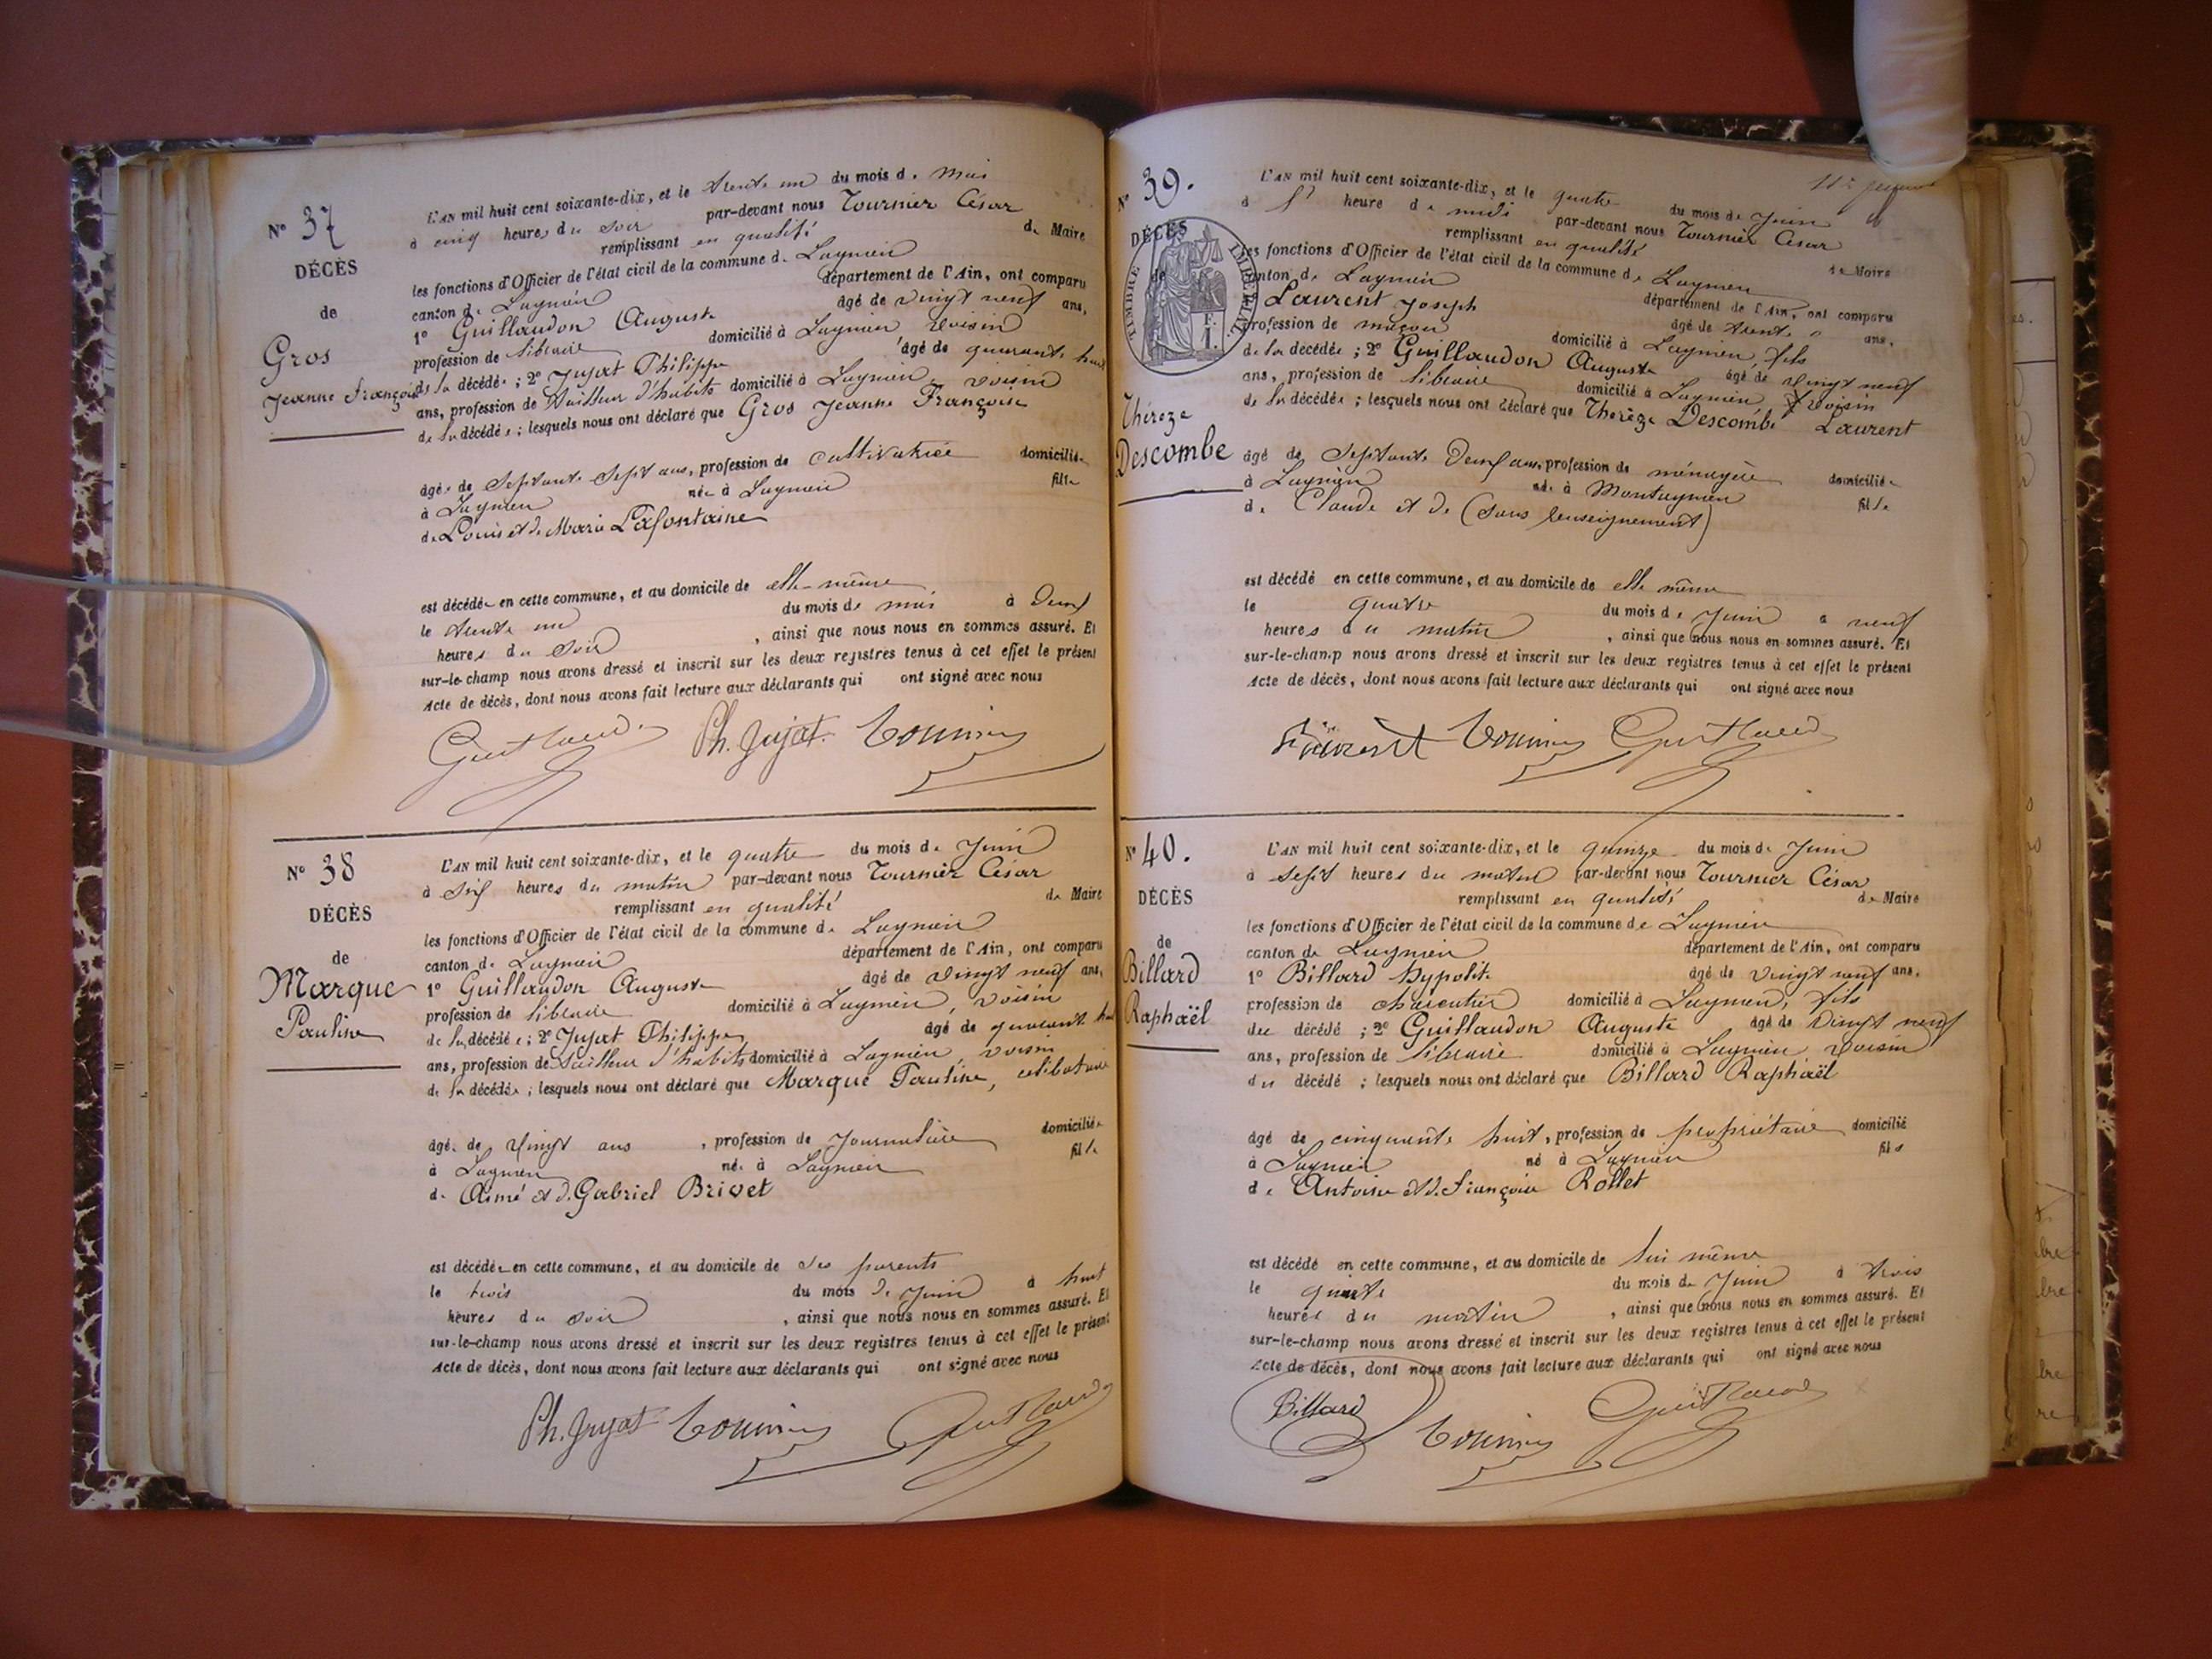 N° 37
DÉCÈS
de
Gros
Jeanne Françoise
L'AN mil huit cent soixante-dix, et le trente un du mois de mai
à cinq heures du soir par-devant nous Tournier César
remplissant en qualité de Maire
les fonctions d'Officier de l'état civil de la commune de Lagnieu
canton de Lagnieu département de l'Ain, ont comparu
1° Guillaudon Auguste âgé de vingt neuf ans,
profession de libraire domicilié à Lagnieu voisin
de la décédée ; 2° Jujat Philippe âgé de quarante huit
ans, profession de tailleur d'habits domicilié à Lagnieu, voisin
de la décédée ; lesquels nous ont déclaré que Gros Jeanne Françoise
âgée de septante sept ans, profession de cultivatrice domiciliée
à Lagnieu née à Lagnieu fille
de Louis et de Marie Lafontaine
est décédée en cette commune, et au domicile de elle-même
le trente un du mois de mai à deux
heures du soir , ainsi que nous nous en sommes assuré. Et
sur-le-champ nous avons dressé et inscrit sur les deux registres tenus à cet effet le présent
Acte de décès, dont nous avons fait lecture aux déclarants qui ont signé avec nous
Ph. Jujat Tournier
N° 38
DÉCÈS
de
Marque
Pauline
L'AN mil huit cent soixante-dix, et le quatre du mois de Juin
à six heures du matin par-devant nous Tournier César
remplissant en qualité de Maire
les fonctions d'Officier de l'état civil de la commune de Lagnieu
canton de Lagnieu département de l'Ain, ont comparu
1° Guillaudon Auguste âgé de vingt neuf ans,
profession de libraire domicilié à Lagnieu, voisin
de la décédée ; 2° Jujat Philippe âgé de quarante huit
ans, profession de tailleur d'habits domicilié à Lagnieu, voisin
de la décédée ; lesquels nous ont déclaré que Marque Pauline, célibataire
âgée de vingt ans , profession de Journalière domiciliée
à Lagnieu née à Lagnieu fille
de Aimé et de Gabriel Brivet
est décédée en cette commune, et au domicile de ses parents
le trois du mois de Juin à huit
heures du soir , ainsi que nous nous en sommes assuré. Et
sur-le-champ nous avons dressé et inscrit sur les deux registres tenus à cet effet le présent
Acte de décès, dont nous avons fait lecture aux déclarants qui ont signé avec nous
Ph. Jujat Tournier
N° 39.
DÉCÈS
de
TIMBRE IMPÉRIAL
Thérèze
Descombe
L'AN mil huit cent soixante-dix, et le quatre du mois de Juin
à 1 heure de midi par-devant nous Tournier César
remplissant en qualité de Maire
les fonctions d'Officier de l'état civil de la commune de Lagnieu
canton de Lagnieu département de l'Ain, ont comparu
1° Laurent Joseph âgé de trente ans,
profession de maçon domicilié à Lagnieu, fils
de la décédée ; 2° Guillaudon Auguste âgé de vingt neuf
ans, profession de libraire domicilié à Lagnieu, voisin
de la décédée ; lesquels nous ont déclaré que Thérèze Descombe Laurent
âgé de septante deux ans, profession de ménagère domiciliée
à Lagnieu née à Montagnieu fille
de Claude et de (sans renseignement)
est décédé en cette commune, et au domicile de elle même
le quatre du mois de Juin à neuf
heures du matin , ainsi que nous nous en sommes assuré. Et
sur-le-champ nous avons dressé et inscrit sur les deux registres tenus à cet effet le présent
Acte de décès, dont nous avons fait lecture aux déclarants qui ont signé avec nous
Laurent Tournier
N° 40.
DÉCÈS
de
Billard
Raphaël
L'AN mil huit cent soixante-dix, et le quinze du mois de Juin
à sept heures du matin par-devant nous Tournier César
remplissant en qualité de Maire
les fonctions d'Officier de l'état civil de la commune de Lagnieu
canton de Lagnieu département de l'Ain, ont comparu
1° Billard Hypolite âgé de vingt neuf ans.
profession de charcutier domicilié à Lagnieu, fils
du décédé ; 2° Guillaudon Auguste âgé de vingt neuf
ans, profession de libraire domicilié à Lagnieu voisin
du décédé ; lesquels nous ont déclaré que Billard Raphaël
âgé de cinquante huit, profession de propriétaire domicilié
à Lagnieu né à Lagnieu fils
de Antoine et de Françoise Rollet
est décédé en cette commune, et au domicile de lui même
le du mois de Juin à trois
heures du matin , ainsi que nous nous en sommes assuré. Et
sur-le-champ nous avons dressé et inscrit sur les deux registres tenus à cet effet le présent
Acte de décès, dont nous avons fait lecture aux déclarants qui ont signé avec nous
Billard Tournier